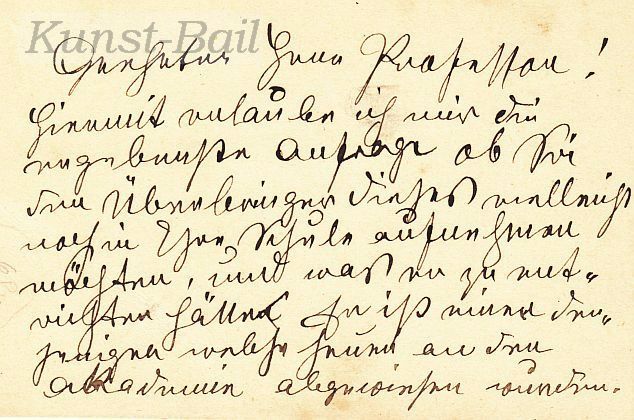 Kunst-Bail
Geehrter Herr Professor!
Hiermit erlaube ich mir die
ergebenste Anfrage ob Sie
den Überbringer dieses vielleicht
noch in Ihre Schule aufnehmen
möchten, und was er zu ent-
richten hätte. Er ist einer der-
jenigen welche heuer an der
Akademie abgewiesen wurden.